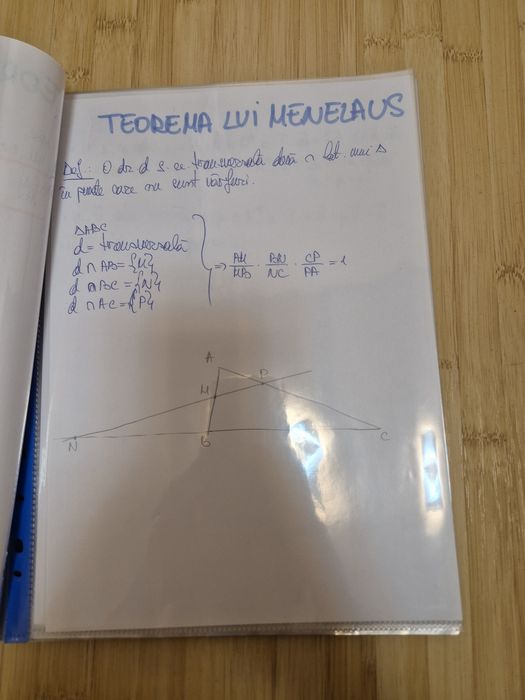 TEOREMA LUI MENELAUS
Def.: O dr. d s.n. transversală dacă ∩ lat. unui Δ
în puncte care nu sunt vârfuri.
ΔABC
d = transversală
d ∩ AB = {M}
d ∩ BC = {N}
d ∩ AC = {P}
⇒ AM/MB · BN/NC · CP/PA = 1
A
P
M
N
B
C